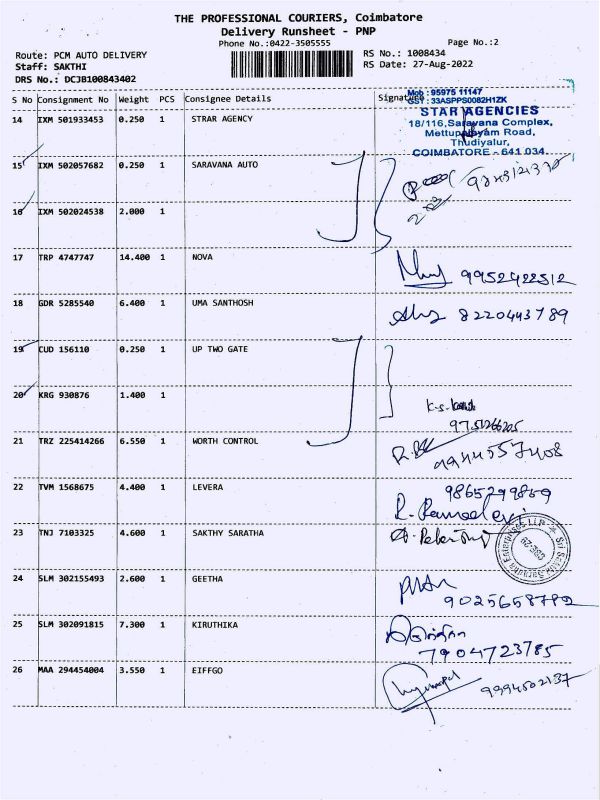 THE PROFESSIONAL COURIERS, Coimbatore
Delivery Runsheet - PNP
Phone No.:0422-3505555
Page No.:2
Route: PCM AUTO DELIVERY
Staff: SAKTHI
DRS No.: DCJB100843402
RS No.: 1008434
RS Date: 27-Aug-2022
S No Consignment No Weight PCS Consignee Details Signature
Mob : 95975 11147
GST : 33ASPPS0082H1ZK
STAR AGENCIES
18/116, Saravana Complex,
Mettupalayam Road,
Thudiyalur,
COIMBATORE - 641 034.
14 IXM 501933453 0.250 1 STRAR AGENCY
15 IXM 502057682 0.250 1 SARAVANA AUTO
16 IXM 502024538 2.000 1
17 TRP 4747747 14.400 1 NOVA
9952422512
18 GDR 5285540 6.400 1 UMA SANTHOSH
8220443789
19 CUD 156110 0.250 1 UP TWO GATE
20 KRG 930876 1.400 1
K.S.
21 TRZ 225414266 6.550 1 WORTH CONTROL
9944557408
22 TVM 1568675 4.400 1 LEVERA
9865299869
R. Ramadevi
23 TNJ 7103325 4.600 1 SAKTHY SARATHA
24 SLM 302155493 2.600 1 GEETHA
9025658782
25 SLM 302091815 7.300 1 KIRUTHIKA
7904723785
26 MAA 294454004 3.550 1 EIFFGO
9994502137